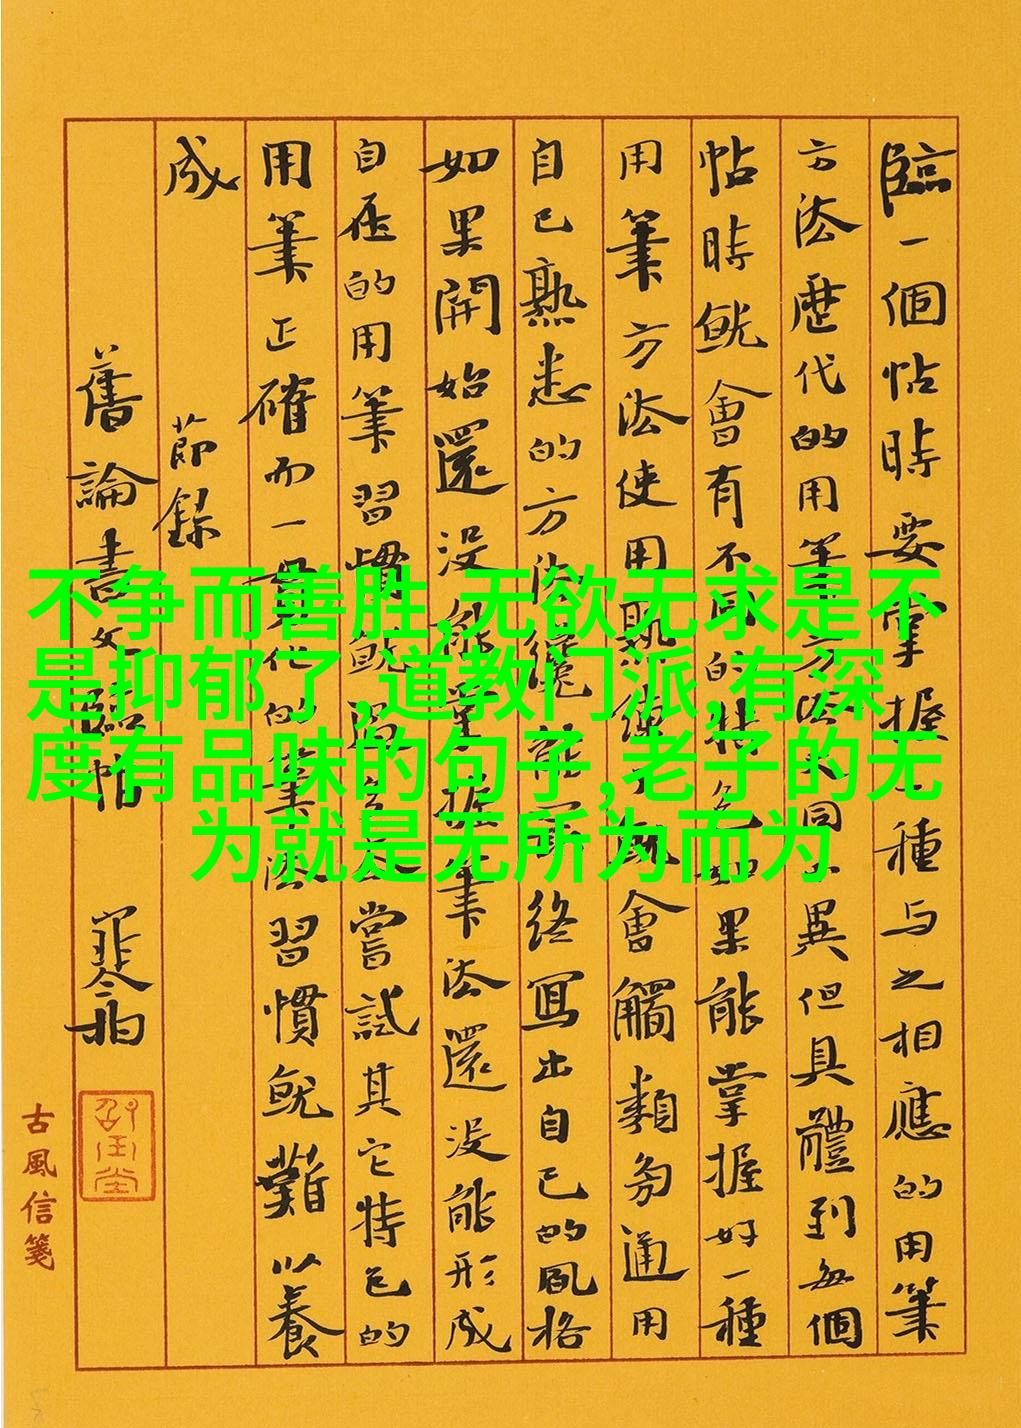 臨一個帖時要掌握一種与之相應的用筆
方法歷代的用筆方法大同小異但具體到每個
帖時就會有不同的特色如果能掌握好一種
用筆方法使用熟練了就會觸類旁通用
自己熟悉的方法纔能最終寫出自己的風格
如果開始還沒能掌握筆法還沒能形成
自在的用筆習慣就嘗試其它特色的
用筆正確而一的筆法習慣就難以養
成 節錄
舊論書如臨帖
古風信箋
不争而善胜,无欲无求是不
是抑郁了,道教门派,有深
度有品味的句子,老子的无
为就是无所为而为